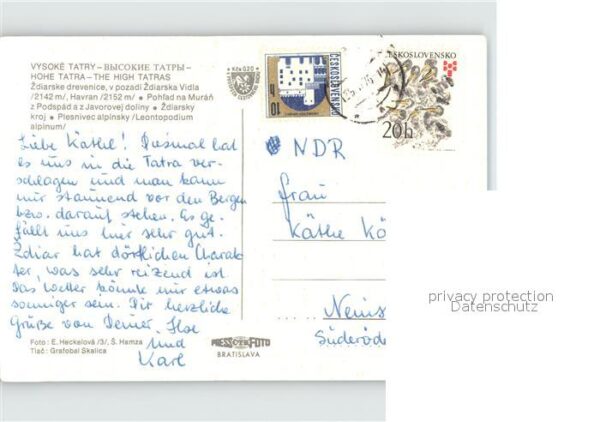 VYSOKÉ TATRY – ВЫСОКИЕ ТАТРЫ –
HOHE TATRA – THE HIGH TATRAS
Ždiarske drevenice, v pozadí Ždiarska Vidla
/2142 m/, Havran /2152 m/ • Pohľad na Muráň
z Podspád a z Javorovej doliny • Ždiarsky
kroj • Plesnivec alpínsky /Leontopodium
alpinum/
Kčs 0,20
ČESKOSLOVENSKO
10 h
ČESKOSLOVENSKO
20h
Liebe Käthe! Diesmal hat
es uns in die Tatra ver-
schlagen und man kann
nur staunend vor den Bergen
bzw. darauf stehen. Es ge-
fällt uns hier sehr gut.
Ždiar hat dörflichen Charak
ter, was sehr reizend ist.
Das Wetter könnte nur etwas
sonniger sein. Dir herzliche
Grüße von Deiner Ilse
und
Karl
NDR
Frau
Käthe Kö
Neins
Süderöde
Foto: E. Heckelová /3/, Š. Hamza
Tlač: Grafobal Skalica
PRESSFOTO
BRATISLAVA
privacy protection
Datenschutz